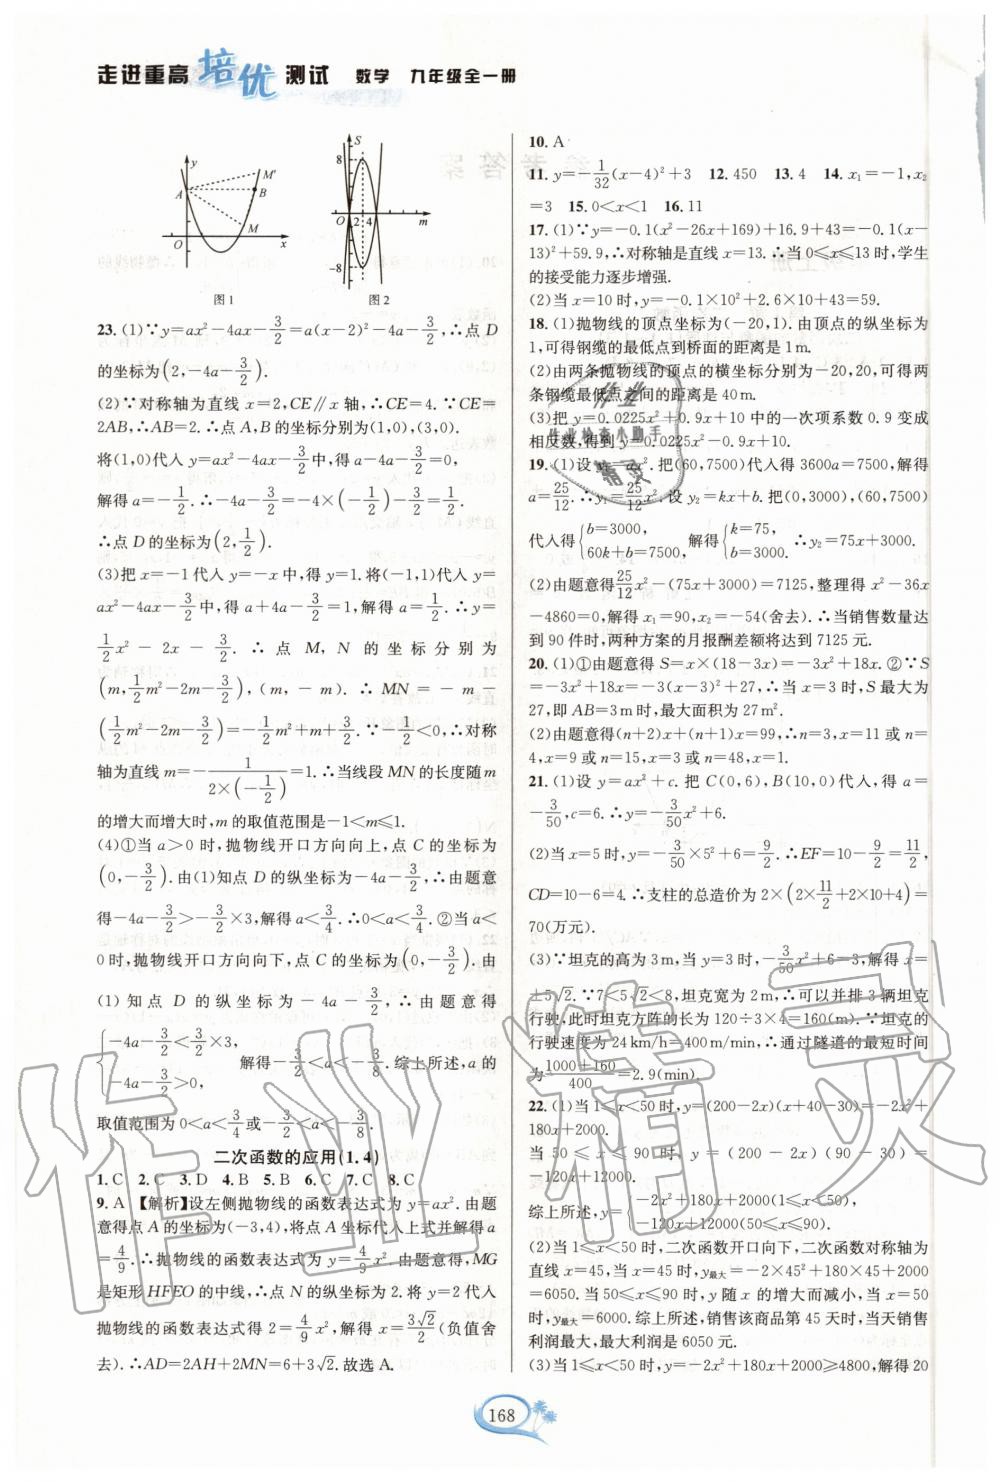 走进重高 培优 测试 数学 九年级全一册
y
M′
A
B
M
O
x
图1
S
8
O
2
4
m
-8
图2
23. (1)∵y=ax²-4ax-3/2=a(x-2)²-4a-3/2,∴点 D
的坐标为(2,-4a-3/2).
(2)∵对称轴为直线 x=2,CE∥x 轴,∴CE=4.∵CE=
2AB,∴AB=2.∴点 A,B 的坐标分别为(1,0),(3,0).
将(1,0)代入 y=ax²-4ax-3/2中,得 a-4a-3/2=0,
解得 a=-1/2.∴-4a-3/2=-4×(-1/2)-3/2=1/2.
∴点 D 的坐标为(2,1/2).
(3)把 x=-1代入 y=-x 中,得 y=1.将(-1,1)代入 y=
ax²-4ax-3/2中,得 a+4a-3/2=1,解得 a=1/2.∴y=
1/2x²-2x-3/2.∴点 M,N 的坐标分别为
(m,1/2m²-2m-3/2),(m,-m).∴MN=-m-
(1/2m²-2m-3/2)=-1/2m²+m+3/2.∵-1/2<0,∴对称
轴为直线 m=-1/(2×(-1/2))=1.∴当线段 MN 的长度随 m
的增大而增大时,m 的取值范围是-1<m≤1.
(4)①当 a>0 时,抛物线开口方向向上,点 C 的坐标为
(0,-3/2).由(1)知点 D 的纵坐标为-4a-3/2,∴由题意
得-4a-3/2>-3/2×3,解得 a<3/4.∴0<a<3/4.②当 a<
0时,抛物线开口方向向下,点 C 的坐标为(0,-3/2).由
(1)知点 D 的纵坐标为-4a-3/2,∴由题意得
{-4a-3/2<3/2×3,
-4a-3/2>0, 解得-3/2<a<-3/8.综上所述,a 的
取值范围为 0<a<3/4或-3/2<a<-3/8.
二次函数的应用(1.4)
1. C 2. C 3. D 4. B 5. B 6. C 7. C 8. C
9. A 【解析】设左侧抛物线的函数表达式为 y=ax².由题
意得点 A 的坐标为(-3,4),将点 A 坐标代入上式并解得 a
=4/9.∴抛物线的函数表达式为 y=4/9x².由题意得,MG
是矩形 HFEO 的中线,∴点 N 的纵坐标为 2.将 y=2 代入
抛物线的函数表达式得 2=4/9x²,解得 x=3√2/2(负值舍
去).∴AD=2AH+2MN=6+3√2.故选 A.
10. A
11. y=-1/32(x-4)²+3 12. 450 13. 4 14. x₁=-1,x₂
=3 15. 0<x<1 16. 11
17. (1)∵y=-0.1(x²-26x+169)+16.9+43=-0.1(x-
13)²+59.9,∴对称轴是直线 x=13.∴当 0≤x≤13 时,学生
的接受能力逐步增强.
(2)当 x=10 时,y=-0.1×10²+2.6×10+43=59.
18. (1)抛物线的顶点坐标为(-20,1).由顶点的纵坐标为
1,可得钢缆的最低点到桥面的距离是 1 m.
(2)由两条抛物线的顶点的横坐标分别为-20,20,可得两
条钢缆最低点之间的距离是 40 m.
(3)把 y=0.0225x²+0.9x+10 中的一次项系数 0.9 变成
相反数,得到 y=0.0225x²-0.9x+10.
19. (1)设 y₁=ax².把(60,7500)代入得 3600a=7500,解得
a=25/12.∴y₁=25/12x².设 y₂=kx+b.把(0,3000),(60,7500)
代入得{b=3000,
60k+b=7500, 解得{k=75,
b=3000. ∴y₂=75x+3000.
(2)由题意得25/12x²-(75x+3000)=7125,整理得 x²-36x
-4860=0,解得 x₁=90,x₂=-54(舍去).∴当销售数量达
到 90 件时,两种方案的月报酬差额将达到 7125 元.
20. (1)①由题意得 S=x×(18-3x)=-3x²+18x.②∵S
=-3x²+18x=-3(x-3)²+27,∴当 x=3 时,S 最大为
27,即 AB=3 m 时,最大面积为 27 m².
(2)由题意得(n+2)x+(n+1)x=99,∴n=3,x=11 或 n=
4,x=9 或 n=15,x=3 或 n=48,x=1.
21. (1)设 y=ax²+c.把 C(0,6),B(10,0)代入,得 a=
-3/50,c=6.∴y=-3/50x²+6.
(2)当 x=5 时,y=-3/50×5²+6=9/2.∴EF=10-9/2=11/2,
CD=10-6=4.∴支柱的总造价为 2×(2×11/2+2×10+4)=
70(万元).
(3)∵坦克的高为 3 m,当 y=3 时,-3/50x²+6=3,解得 x=
±5√2.∵7<5√2<8,坦克宽为 2 m,∴可以并排 3 辆坦克
行驶,此时坦克方阵的长为 120÷3×4=160(m).∵坦克的
行驶速度为 24 km/h=400 m/min,∴通过隧道的最短时间
为(1000+160)/400=2.9(min).
22. (1)当 1≤x<50 时,y=(200-2x)(x+40-30)=-2x²+
180x+2000.
当 50≤x≤90 时,y=(200-2x)(90-30)=
-120x+12000.
综上所述,y={-2x²+180x+2000(1≤x<50),
-120x+12000(50≤x≤90).
(2)当 1≤x<50 时,二次函数开口向下,二次函数对称轴为
直线 x=45,当 x=45 时,y最大=-2×45²+180×45+2000
=6050.当 50≤x≤90 时,y 随 x 的增大而减小,当 x=50
时,y最大=6000.综上所述,销售该商品第 45 天时,当天销售
利润最大,最大利润是 6050 元.
(3)当 1≤x<50 时,y=-2x²+180x+2000≥4800,解得 20
168
作业
作业检查小助手
精灵
作业精灵